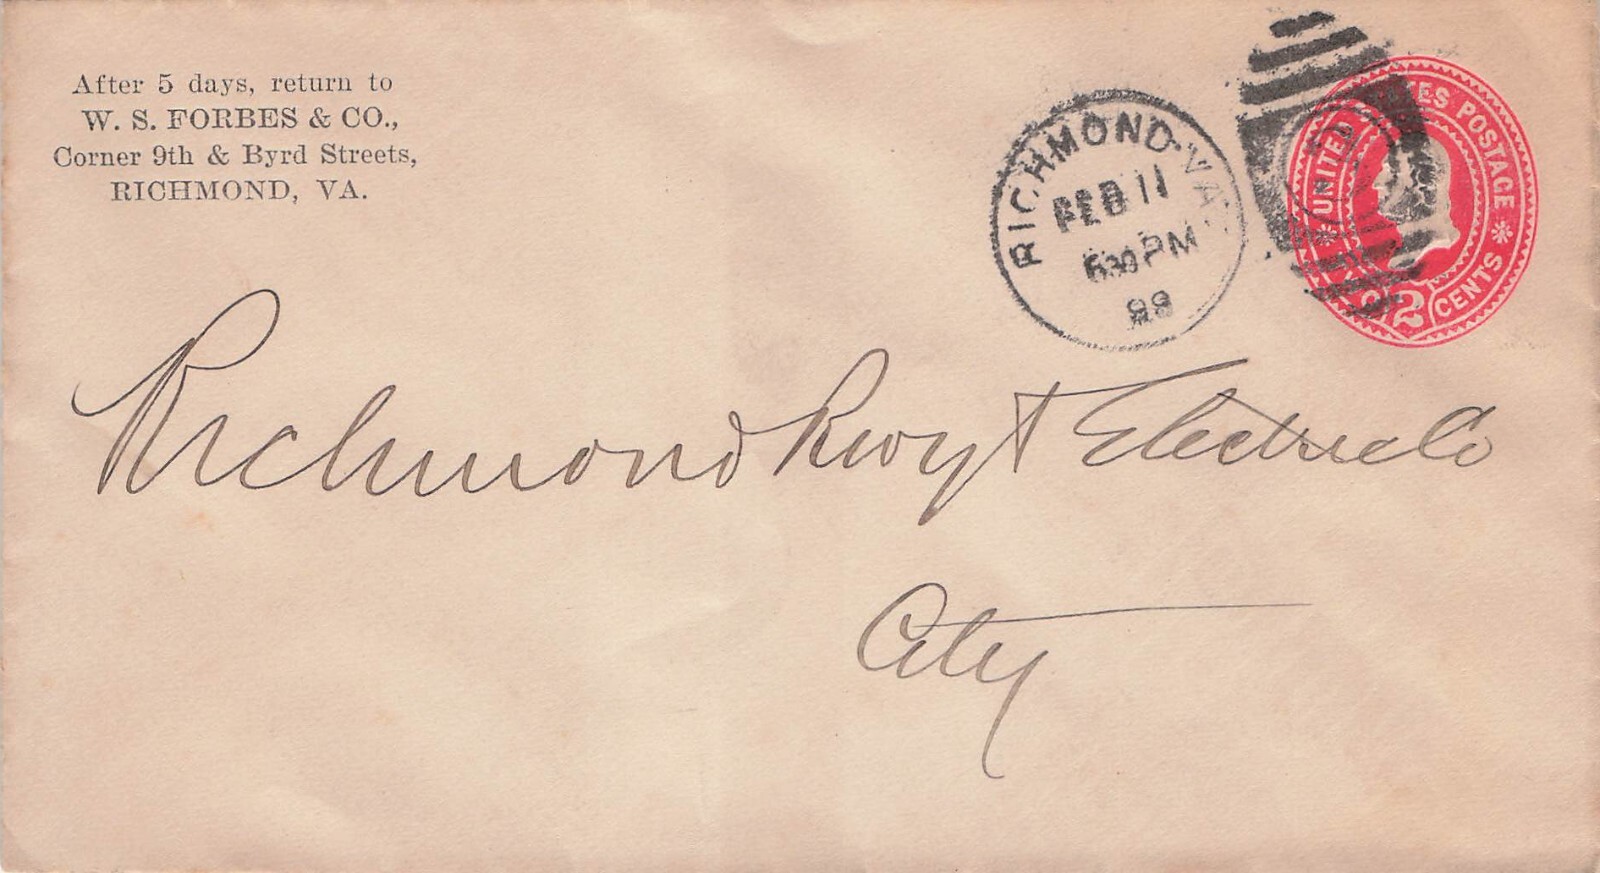 After 5 days, return to
W. S. FORBES & CO.,
Corner 9th & Byrd Streets,
RICHMOND, VA.
RICHMOND. VA.
FEB 11
630 PM
99
UNITED STATES POSTAGE
TWO 2 CENTS
Richmond Rwy & Electric Co
City